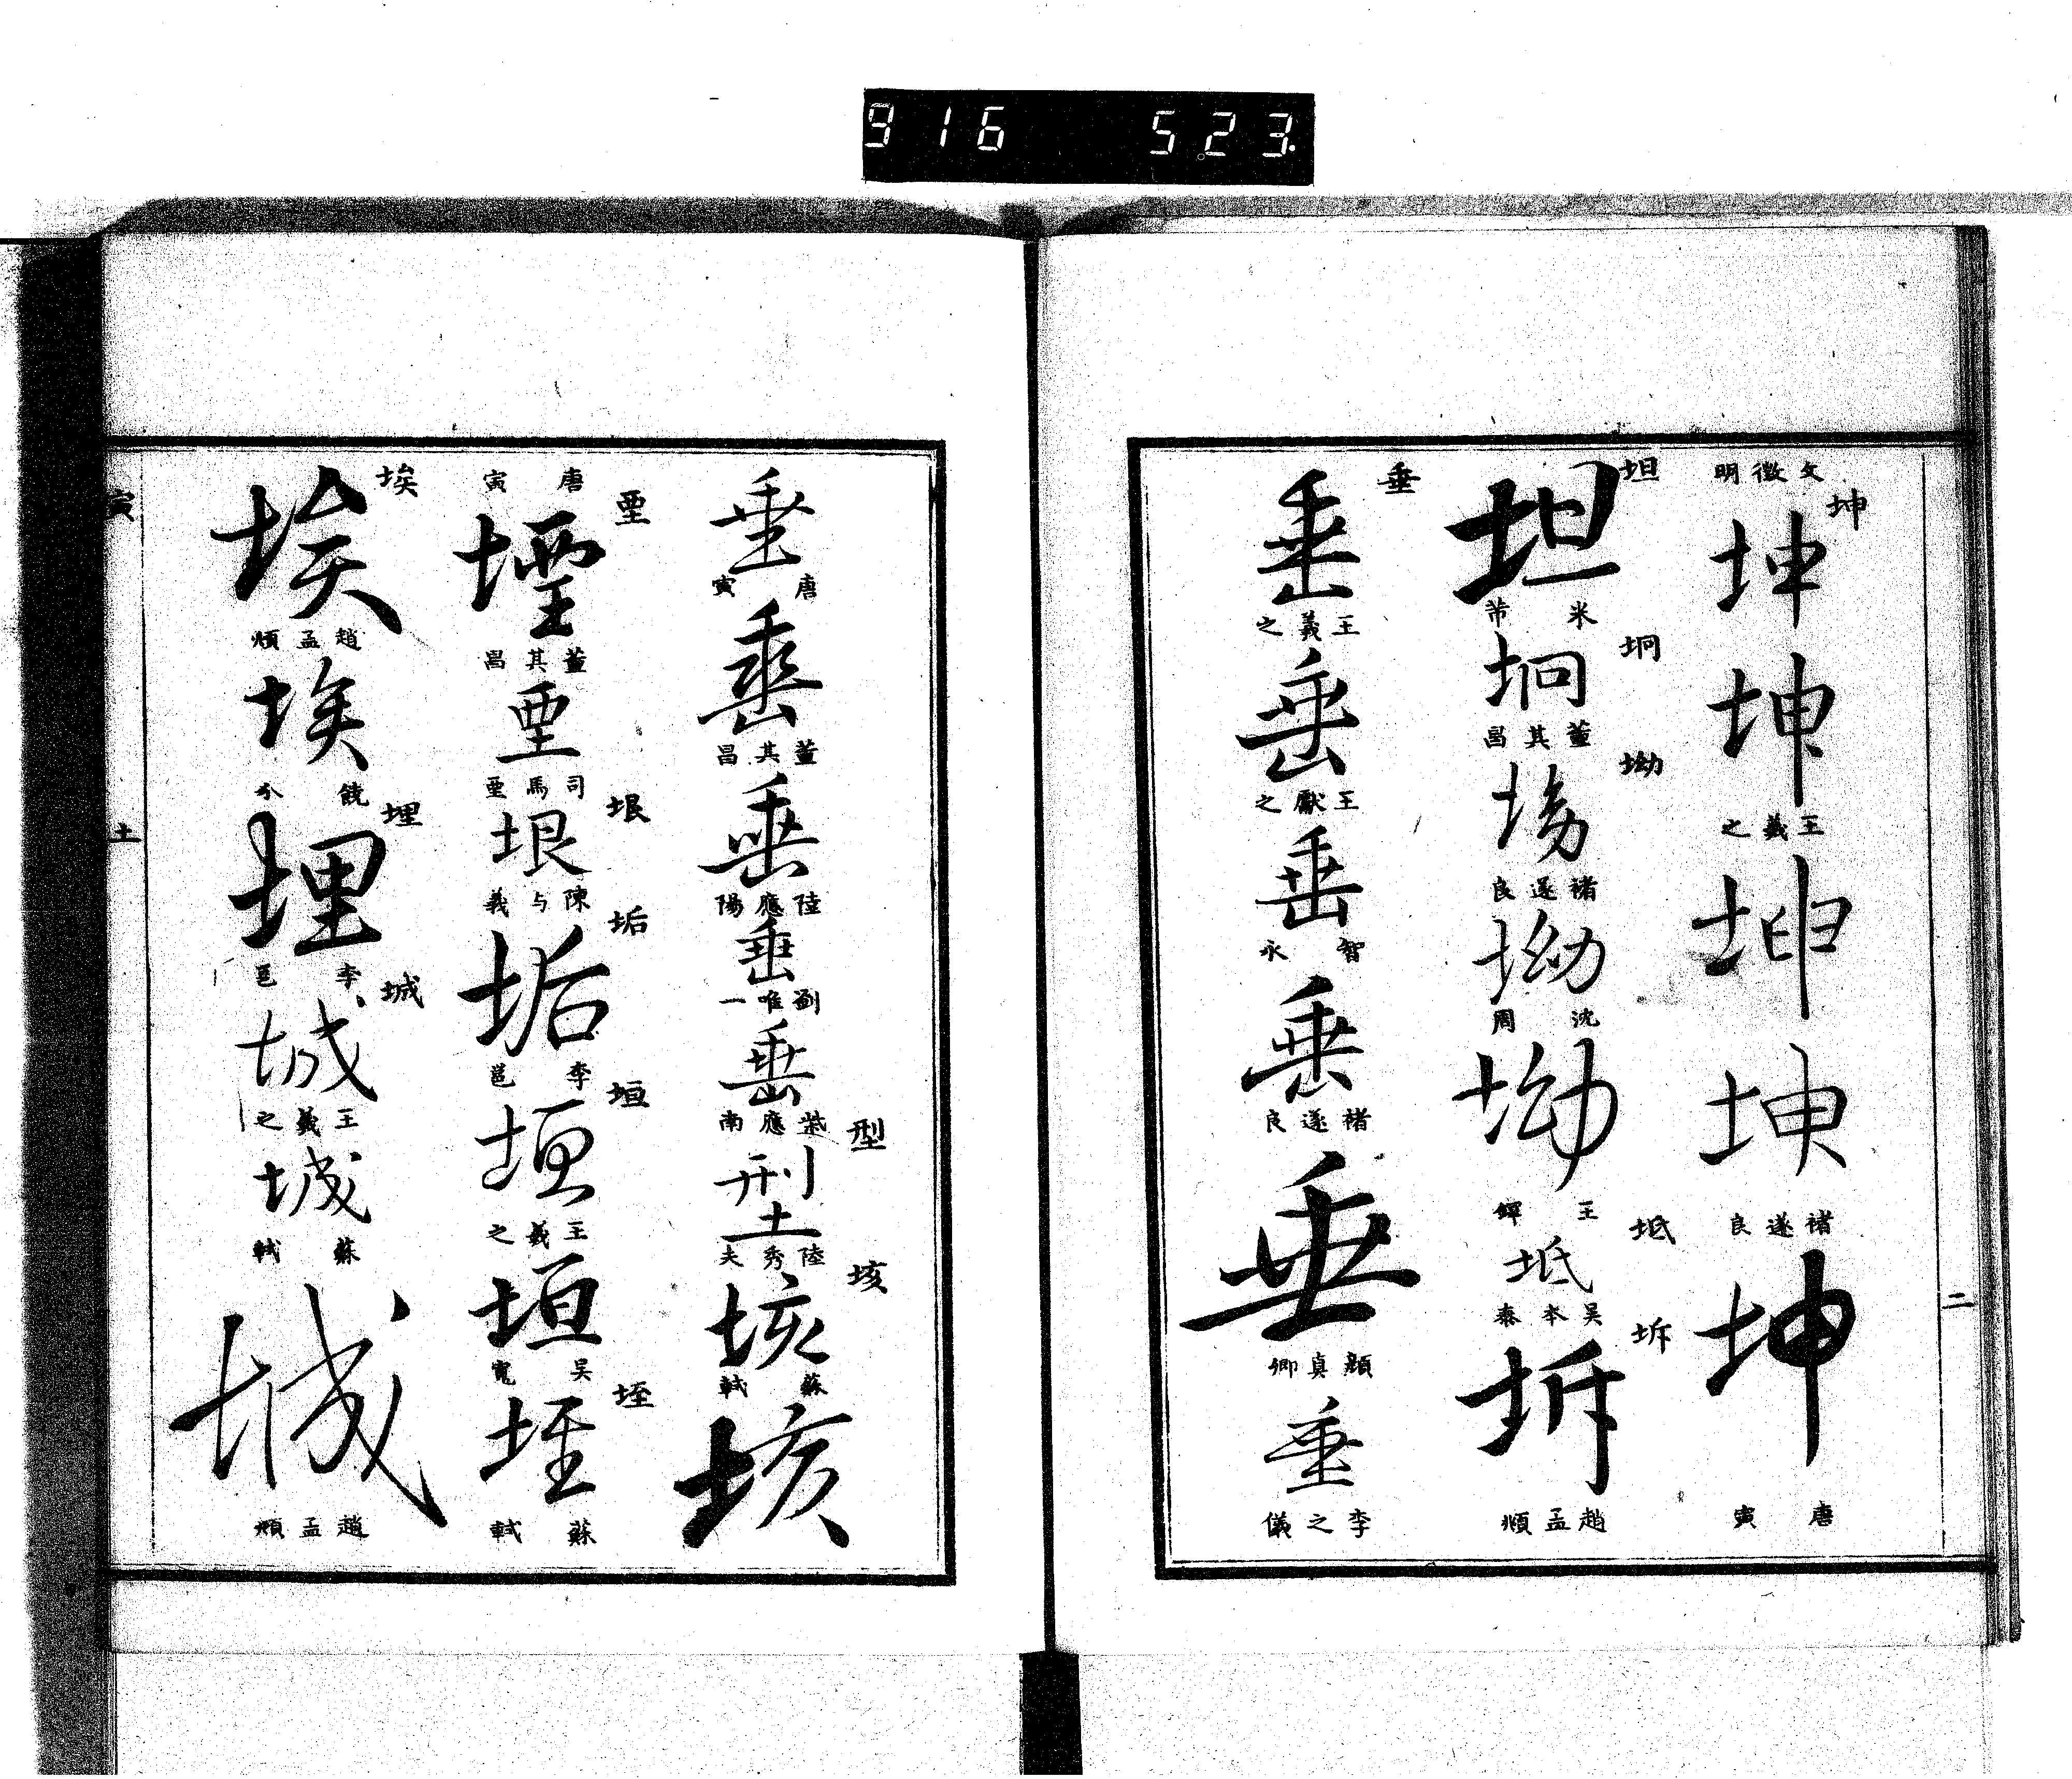 916 523
坤
文徵明
坤
坤
王羲之
坤
坤
褚遂良
坤
唐寅
坦
坦
米芾
坰
坰
董其昌
坳
坳
褚遂良
坳
沈周
坳
王鐸
坻
坻
吴本泰
坼
坼
趙孟頫
垂
垂
王羲之
垂
王獻之
垂
智永
垂
褚遂良
垂
顏真卿
垂
李之儀
二
垂
唐寅
垂
董其昌
垂
陸應陽
垂
劉唯一
垂
應南
型
型
陸秀夫
垓
垓
蘇軾
垓
唐寅
垔
堙
董其昌
垔
司馬垔
垠
垠
陳与義
垢
垢
李邕
垣
垣
王羲之
垣
吴寬
垤
垤
蘇軾
埃
埃
趙孟頫
埃
饒介
埋
埋
李邕
城
城
王羲之
城
蘇軾
城
趙孟頫
寅
土